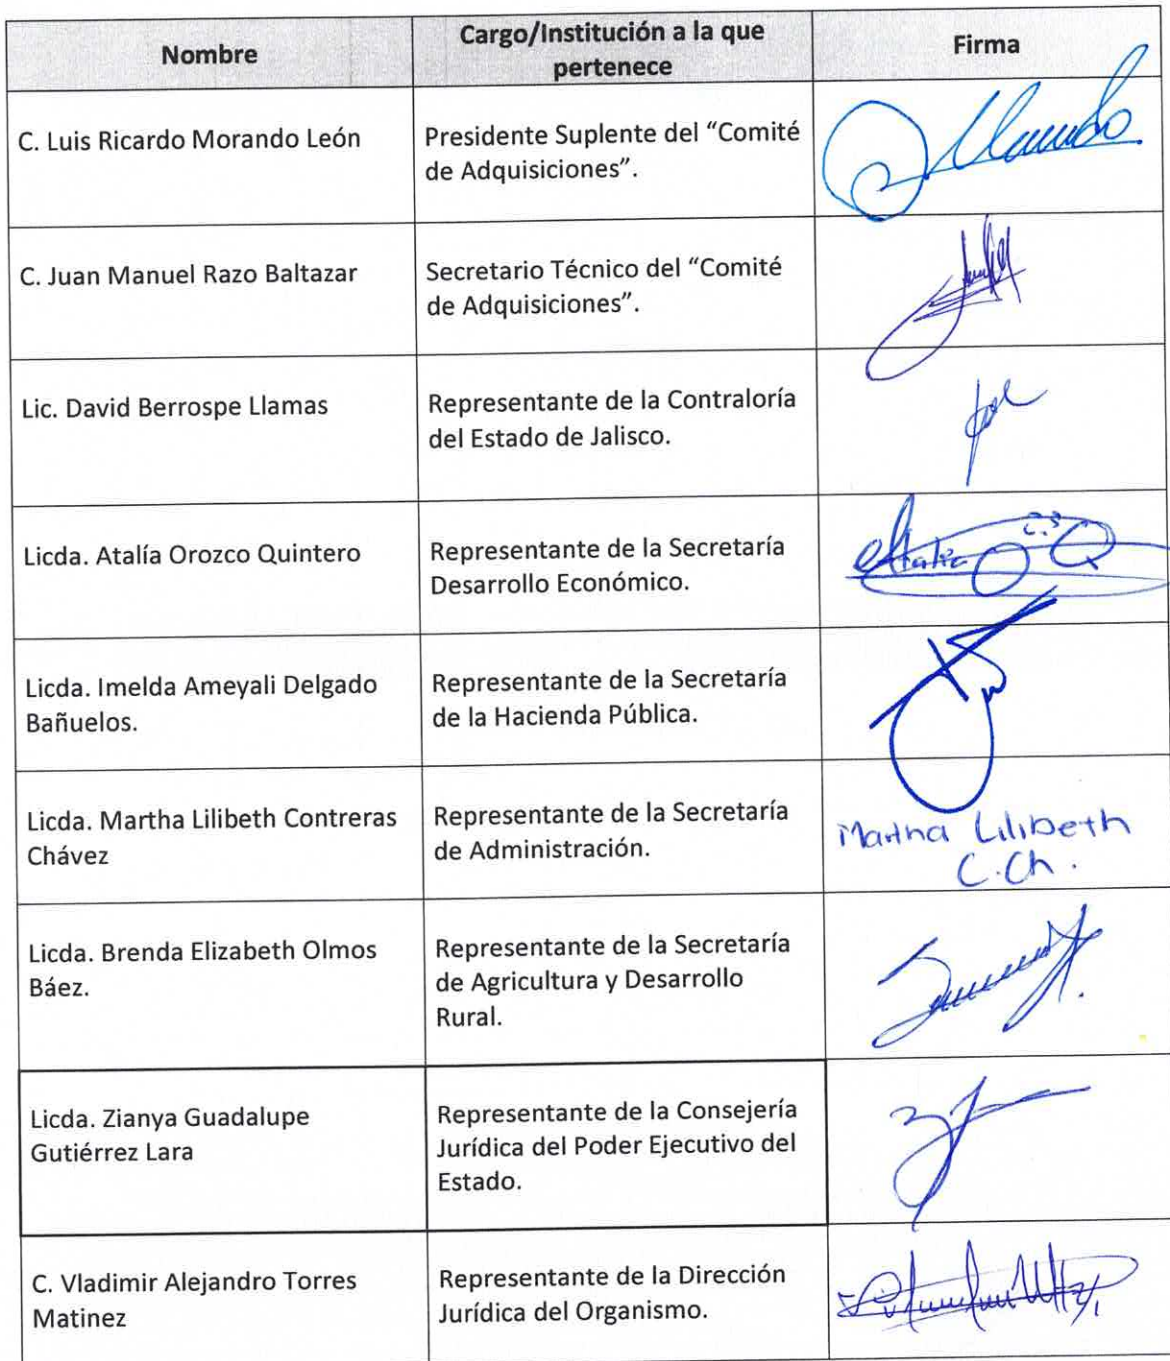 Nombre
Cargo/Institución a la que
pertenece
Firma
C. Luis Ricardo Morando León
Presidente Suplente del “Comité
de Adquisiciones”.
C. Juan Manuel Razo Baltazar
Secretario Técnico del “Comité
de Adquisiciones”.
Lic. David Berrospe Llamas
Representante de la Contraloría
del Estado de Jalisco.
Licda. Atalía Orozco Quintero
Representante de la Secretaría
Desarrollo Económico.
Atalia
Licda. Imelda Ameyali Delgado
Bañuelos.
Representante de la Secretaría
de la Hacienda Pública.
Licda. Martha Lilibeth Contreras
Chávez
Representante de la Secretaría
de Administración.
Martha Lilibeth
C.Ch.
Licda. Brenda Elizabeth Olmos
Báez.
Representante de la Secretaría
de Agricultura y Desarrollo
Rural.
Licda. Zianya Guadalupe
Gutiérrez Lara
Representante de la Consejería
Jurídica del Poder Ejecutivo del
Estado.
C. Vladimir Alejandro Torres
Matinez
Representante de la Dirección
Jurídica del Organismo.